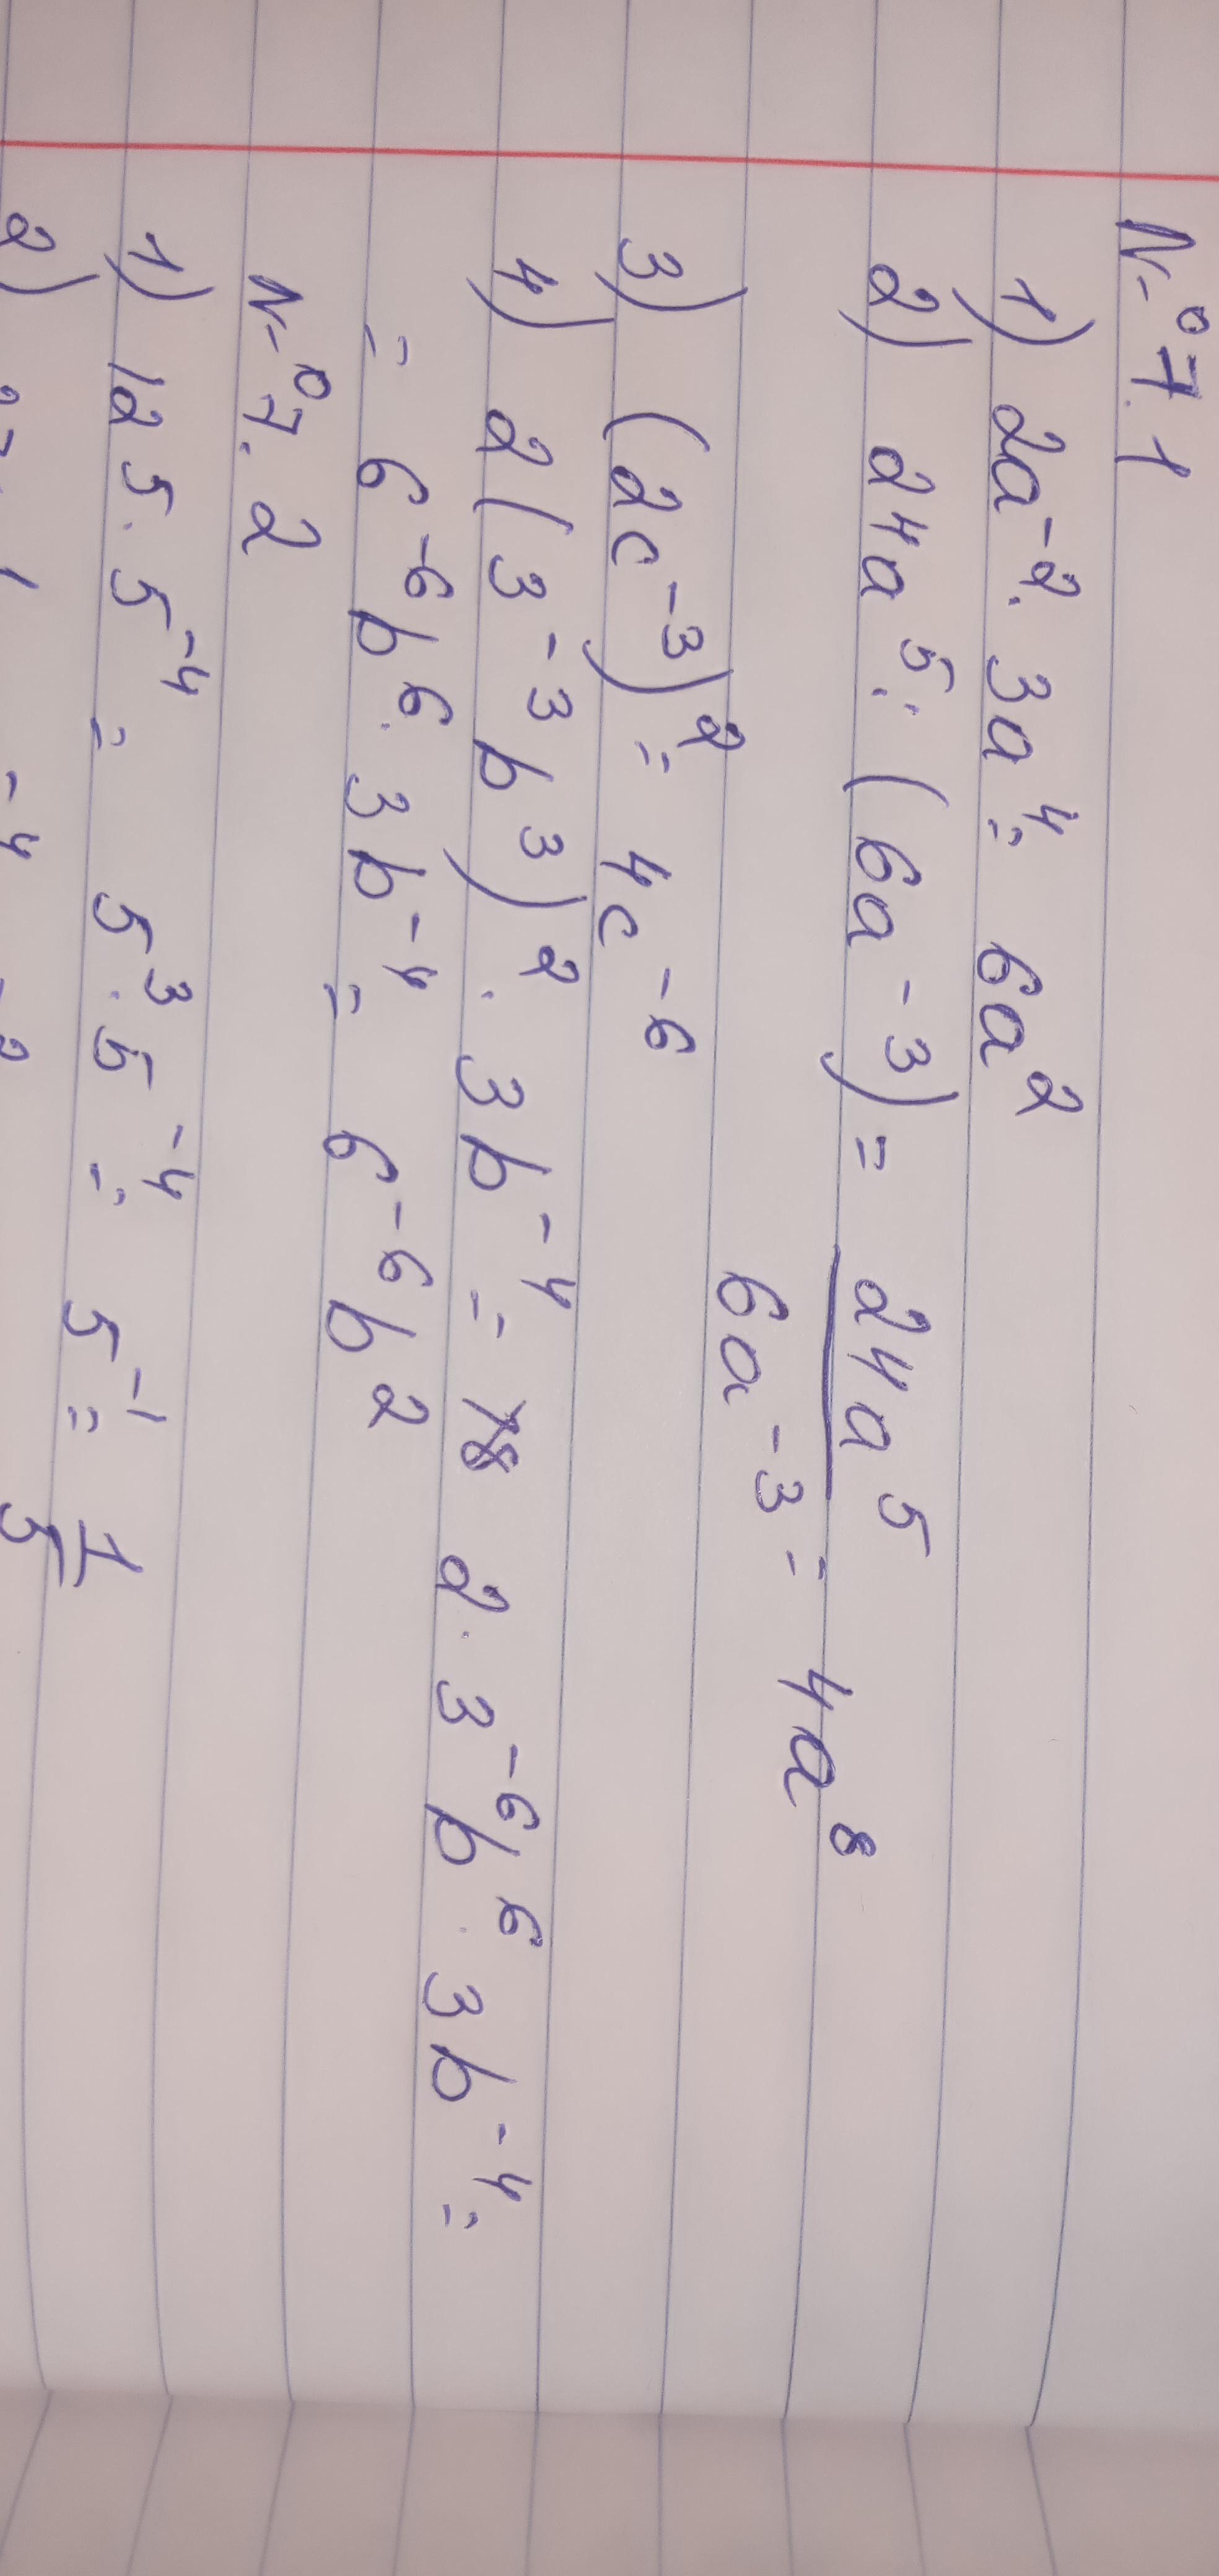 №7.1
1) 2a⁻². 3a⁴= 6a²
2) 24a⁵: (6a⁻³) = 24a⁵/6a⁻³ = 4a⁸
3) (2c⁻³)² = 4c⁻⁶
4) 2(3⁻³b³)². 3b⁻⁴ = 2. 3⁻⁶b⁶. 3b⁻⁴=
= 6⁻⁶b⁶. 3b⁻⁴ = 6⁻⁶b²
№7.2
1) 125. 5⁻⁴ = 5³. 5⁻⁴ = 5⁻¹ = 1/5
2)